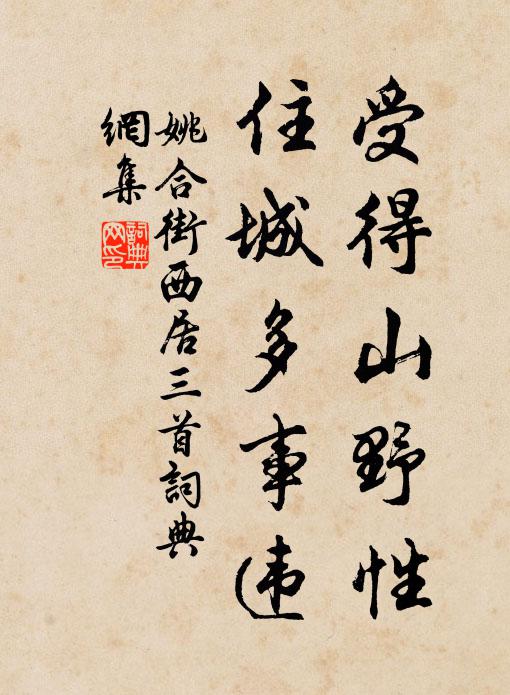 受得山野性
住城多事违
姚合街西居三首詞典
網集
詞典
网印